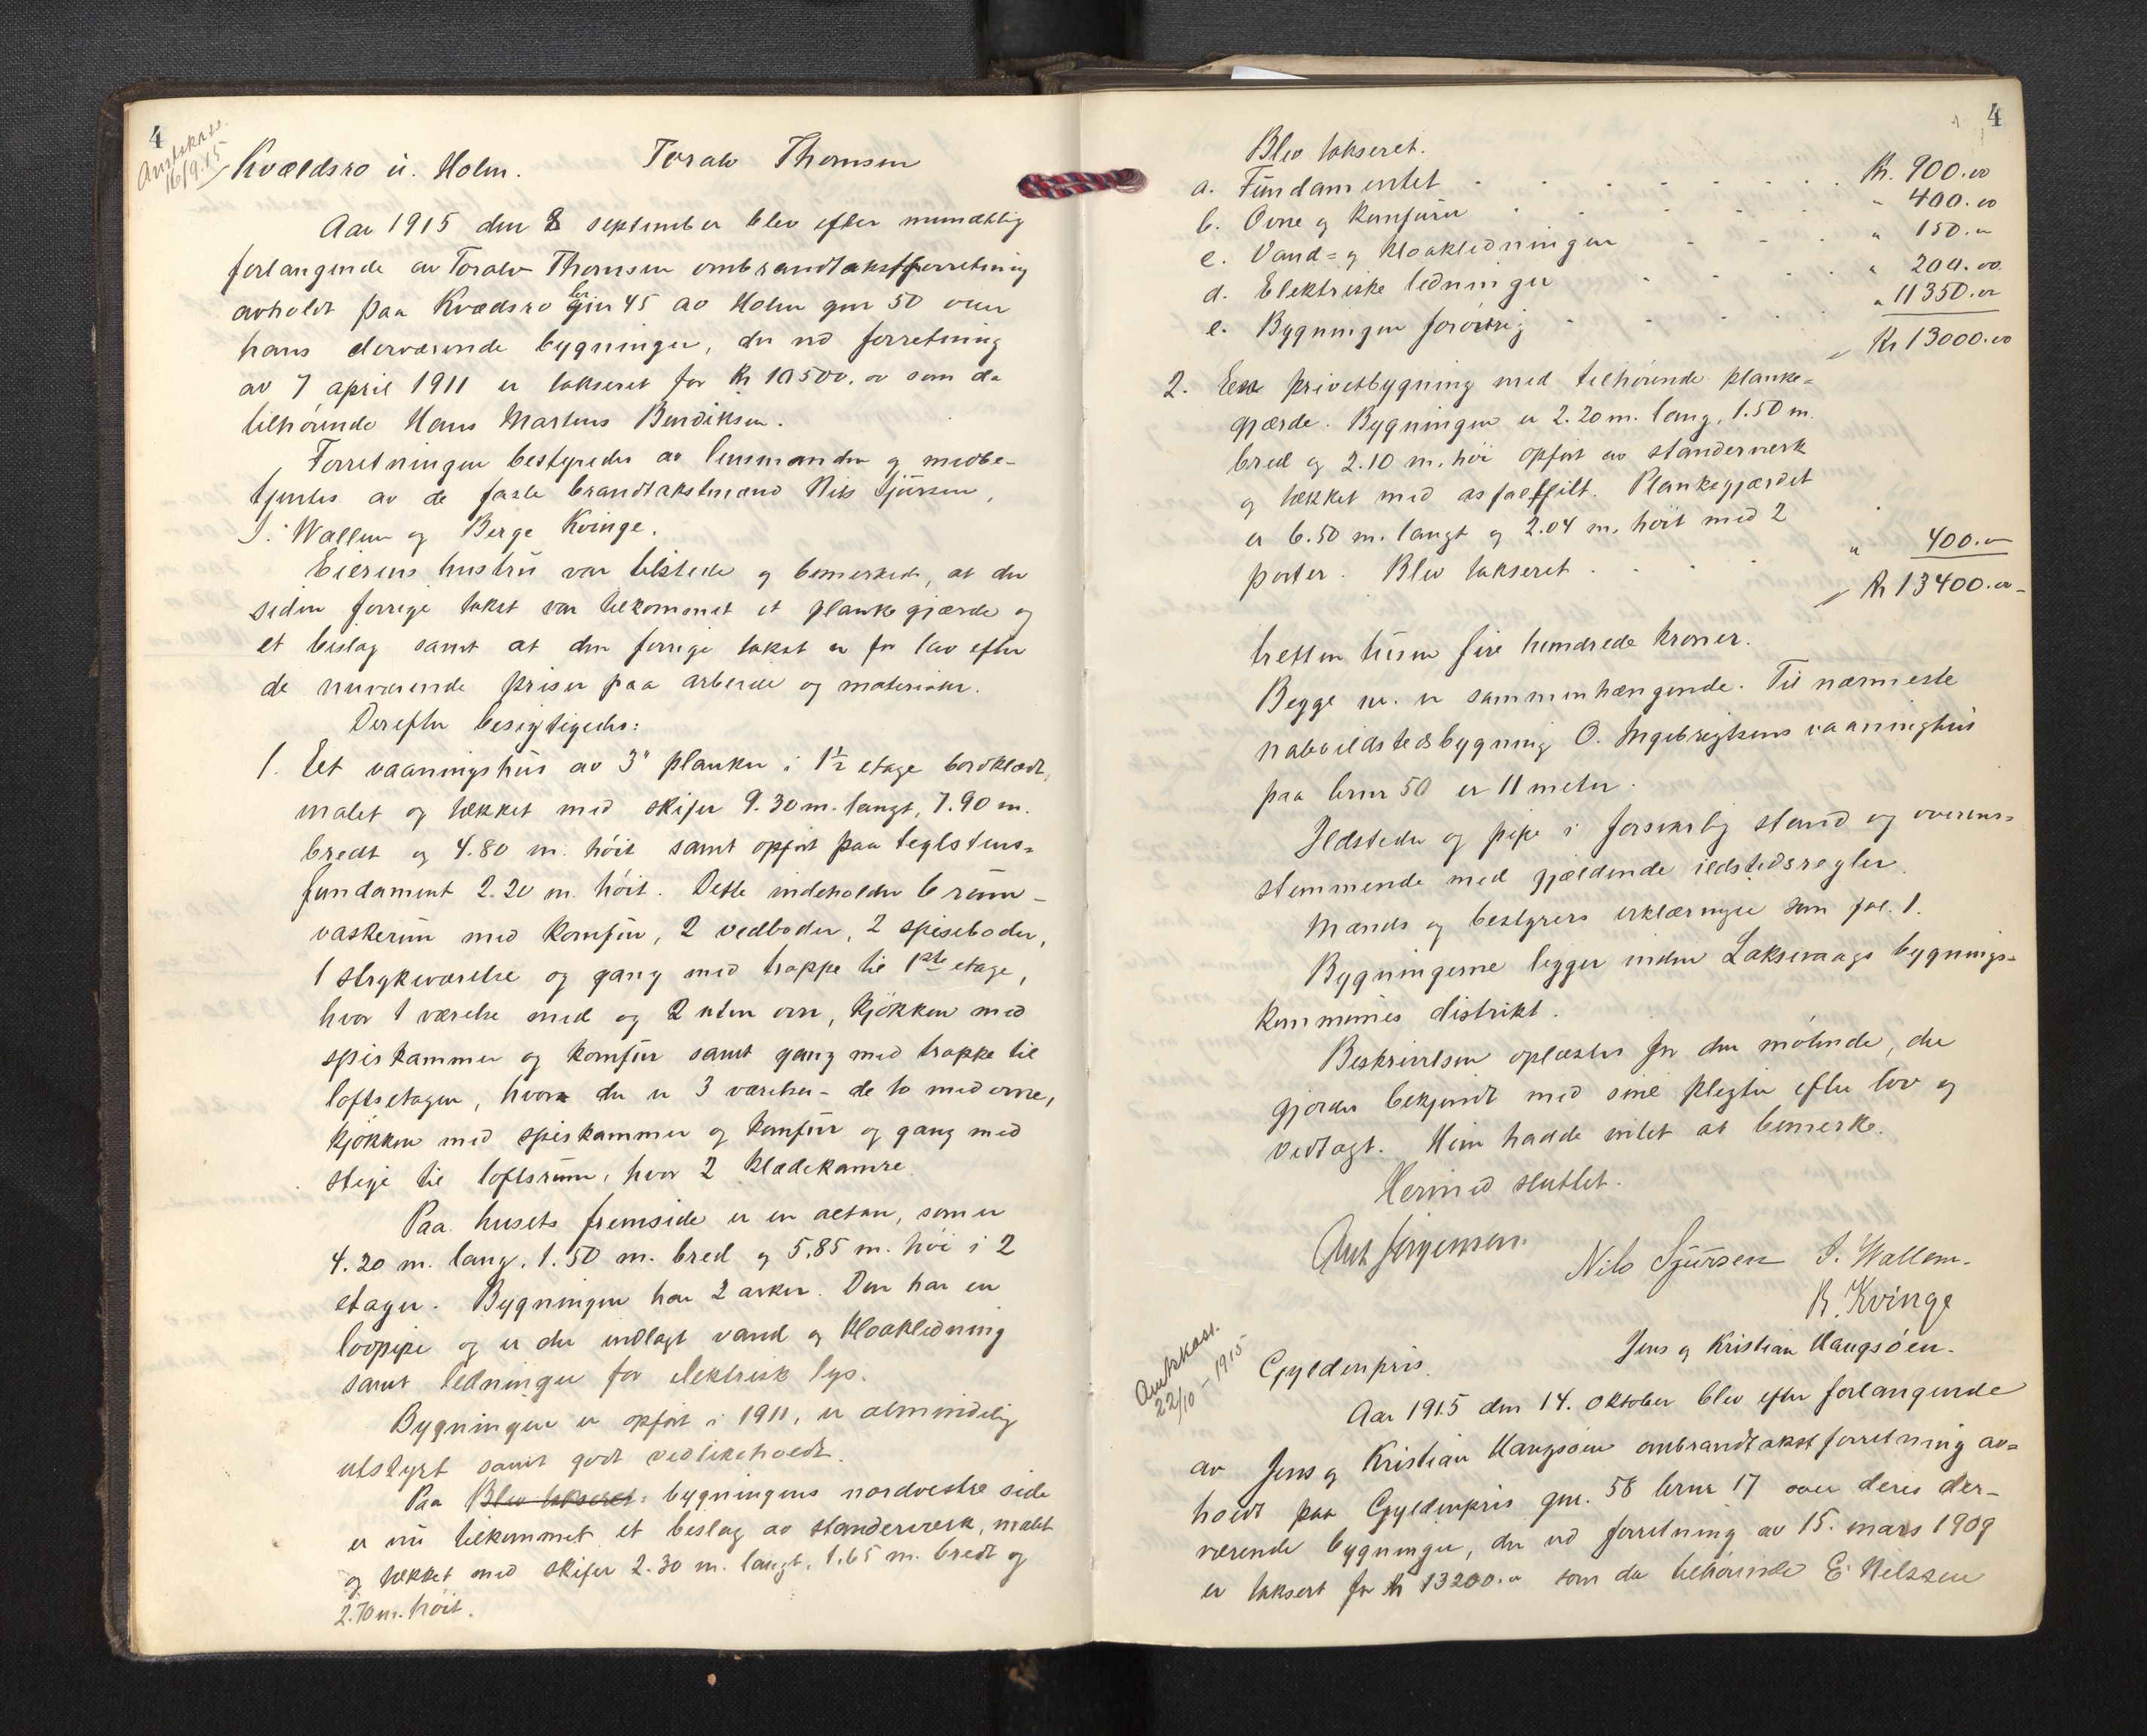 4
Amtskass.
16/9.15
Kvældsro u. Holm. Toralv Thomsen
Aar 1915 den 8 september blev efter mundtlig
forlangende av Toralv Thomsen ombrandtakstforretning
avholdt paa Kvædsro brn 45 av Holm gnr 50 over
hans derværende bygninger, der ved forretning
av 7 april 1911 er takseret for kr 10500.00 som da
tilhörende Hans Martens Bendiksen.
Forretningen bestyredes av lensmanden og medbe-
tjentes av de faste brandtakstmænd Nils Sjursen,
I. Wallem og Berge Kvinge.
Eierens hustru var tilstede og bemerkede, at der
siden forrige takst var tilkommet et plankegjærde og
et bislag samt at den forrige takst er for lav efter
de nuværende priser paa arbeide og materialer.
Derefter besigtigedes:
1. Et vaaningshus av 3" planker i 1½ etage bordklædt,
malet og tækket med skifer 9.30 m. langt, 7.90 m.
bredt og 4.80 m. höit samt opfört paa teglstens-
fundament 2.20 m. höit. Dette indeholder 6 rum -
vaskerum med komfur, 2 vedboder, 2 spiseboder,
1 strykeværelse og gang med trappe til 1ste etage,
hvor 1 værelse med og 2 uten ovn, kjökken med
spiskammer og komfur samt gang med trappe til
loftsetagen, hvor der er 3 værelser - de to med ovne,
kjökken med spiskammer og komfur og gang med
stige til loftsrum, hvor 2 klædekamre.
Paa husets fremside er en altan, som er
4.20 m. lang, 1.50 m. bred og 5.85 m. höi i 2
etager. Bygningen har 2 arker. Den har en
lovpipe og er der indlagt vand og kloakledning
samt ledninger for elektrisk lys.
Bygningen er opfört i 1911, er almindelig
utstyrt samt godt vedlikeholdt.
Paa Blev takseret: bygningens nordvestre side
er nu tilkommet et beslag av standerverk, malet
og tækket med skifer 2.30 m. langt, 1.65 m. bredt og
2.70 m. höit.
4
Blev takseret.
a. Fundamentet Kr. 900.00
b. Ovne og komfurer " 400.00
c. Vand= og kloakledningen " 150.00
d. Elektriske ledninger " 200.00
e. Bygningen forövrig " 11350.00
Kr 13000.00
2. En privetbygning med tilhörende planke=
gjærde. Bygningen er 2.20 m. lang, 1.50 m.
bred og 2.10 m. höi opfört av standerverk
og tækket med asfaltfilt. Plankegjærdet
er 6.50 m. langt og 2.04 m. höit med 2
porter. Blev takseret " 400.00
Kr 13400.00
tretten tusen fire hundrede kroner.
Begge nr. er sammenhængende. Til nærmeste
naboildstedsbygning O. Ingebrigtsens vaaninghus
paa brnr 50 er 11 meter.
Ildsteder og pipe i forsvarlig stand og overens=
stemmende med gjældende ildstedsregler.
Mænds og bestyrers erklæringer som fol. 1.
Bygningerne ligger under Laksevaags bygnings=
kommunes distrikt.
Beskrivelsen oplæstes for den mötende, der
gjordes bekjendt med sine pligter efter lov og
vedtægt. Hun hadde intet at bemerke.
Hermed sluttet.
Ant Jörgensen. Nils Sjursen I. Wallem.
B. Kvinge
Amtskass.
22/10 - 1915
Gyldenpris. Jens og Kristian Haugsöen.
Aar 1915 den 14. oktober blev efter forlangende
av Jens og Kristian Haugsöen ombrandtakstforretning av=
holdt paa Gyldenpris gnr. 58 brnr 17 over deres der-
værende bygninger, der ved forretning av 15. mars 1909
er taksert for kr 13200.00 som da tilhörende E. Nilssen